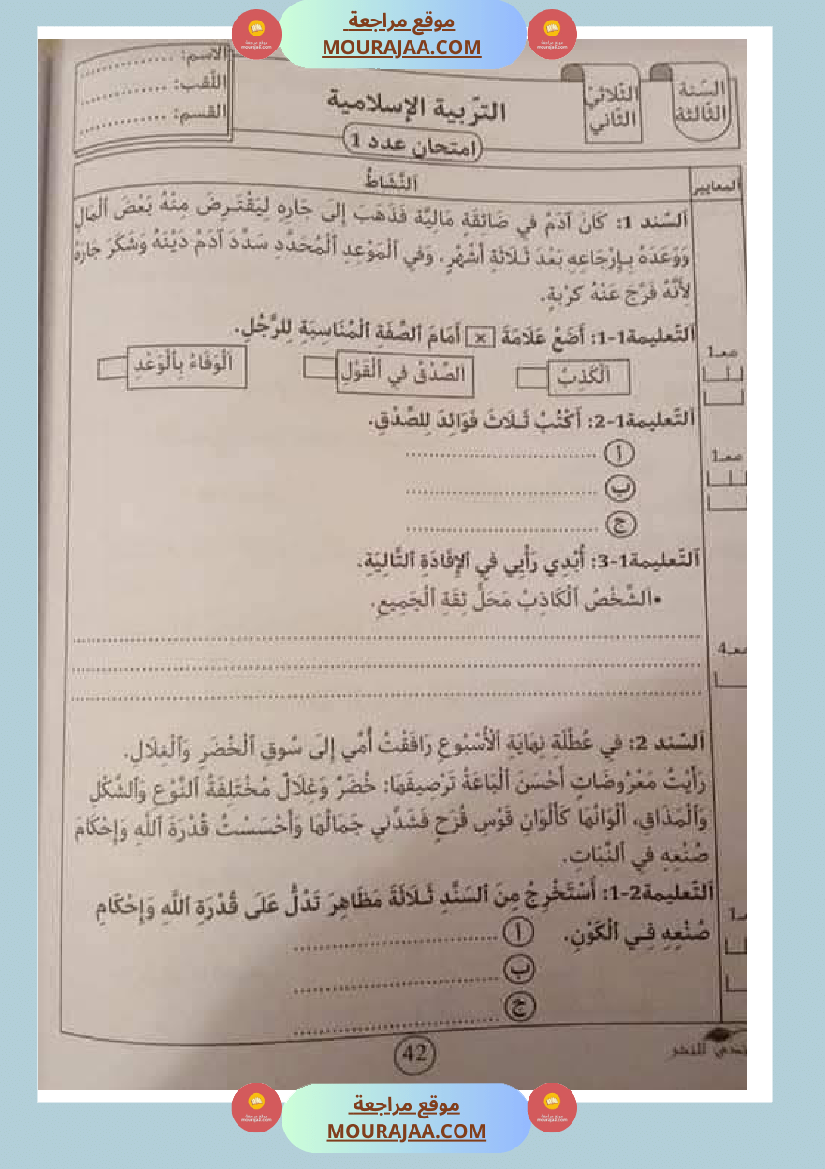 موقع مراجعة
MOURAJAA.COM
السّنة
الثّالثة
الثّلاثيّ
الثّاني
التّربية الإسلامية
امتحان عدد 1
الاسم: ..............
اللّقب: ..............
القسم: ..............
المعايير
اَلنَّشَاطُ
اَلسّند 1: كَانَ آدَمُ فِي ضَائقَة مَالِيَّة فَذَهَبَ إِلَى جَارِهِ لِيَقْتَرِضَ مِنْهُ بَعْضَ اَلْمَالِ
وَوَعَدَهُ بِإِرْجَاعِهِ بَعْدَ ثَلَاثَةِ أَشْهُرٍ. وَفِي اَلْمَوْعِدِ اَلْمُحَدَّدِ سَدَّدَ آدَمُ دَيْنَهُ وَشَكَرَ جَارَهُ
لِأَنَّهُ فَرَّجَ عَنْهُ كُرْبَةٍ.
اَلتَّعليمة1-1: أَضَعُ عَلَامَةَ × أَمَامَ اَلصِّفَةِ اَلْمُنَاسِبَةِ لِلرَّجُلِ.
معـ1
اَلْكَذِبُ
اَلصِّدْقُ فِي اَلْقَوْلِ
اَلْوَفَاءُ بِاَلْوَعْدِ
اَلتَّعليمة1-2: أَكْتُبُ ثَلَاثَ فَوَائِدَ لِلصِّدْقِ.
معـ1
أ ......................
ب ......................
ج ......................
اَلتَّعليمة1-3: أُبْدِي رَأْيِي فِي اَلْإِفَادَةِ اَلتَّالِيَةِ.
•اَلشَّخْصُ اَلْكَاذِبُ مَحَلُّ ثِقَةِ اَلْجَمِيعِ.
معـ4
اَلسّند 2: فِي عُطْلَةِ نِهَايَةِ اَلْأُسْبُوعِ رَافَقْتُ أُمِّي إِلَى سُوقِ اَلْخُضَرِ وَاَلْغِلَالِ.
رَأَيْتُ مَعْرُوضَاتٍ أَحْسَنَ اَلْبَاعَةُ تَرْصِيفَهَا: خُضَرٌ وَغِلَالٌ مُخْتَلِفَةُ اَلنَّوْعِ وَاَلشَّكْلِ
وَاَلْمَذَاقِ، أَلْوَانُهَا كَأَلْوَانِ قَوْسِ قُزَحٍ فَشَدَّنِي جَمَالُهَا وَأَحْسَسْتُ قُدْرَةَ اَللَّهِ وَإِحْكَامَ
صُنْعِهِ فِي اَلنَّبَاتِ.
اَلتَّعليمة2-1: أَسْتَخْرِجُ مِنَ اَلسَّنَدِ ثَلَاثَةَ مَظَاهِرَ تَدُلُّ عَلَى قُدْرَةِ اَللَّهِ وَإِحْكَامِ
صُنْعِهِ فِي اَلْكَوْنِ.
أ ......................
ب ......................
ج ......................
42
للنشر
موقع مراجعة
MOURAJAA.COM